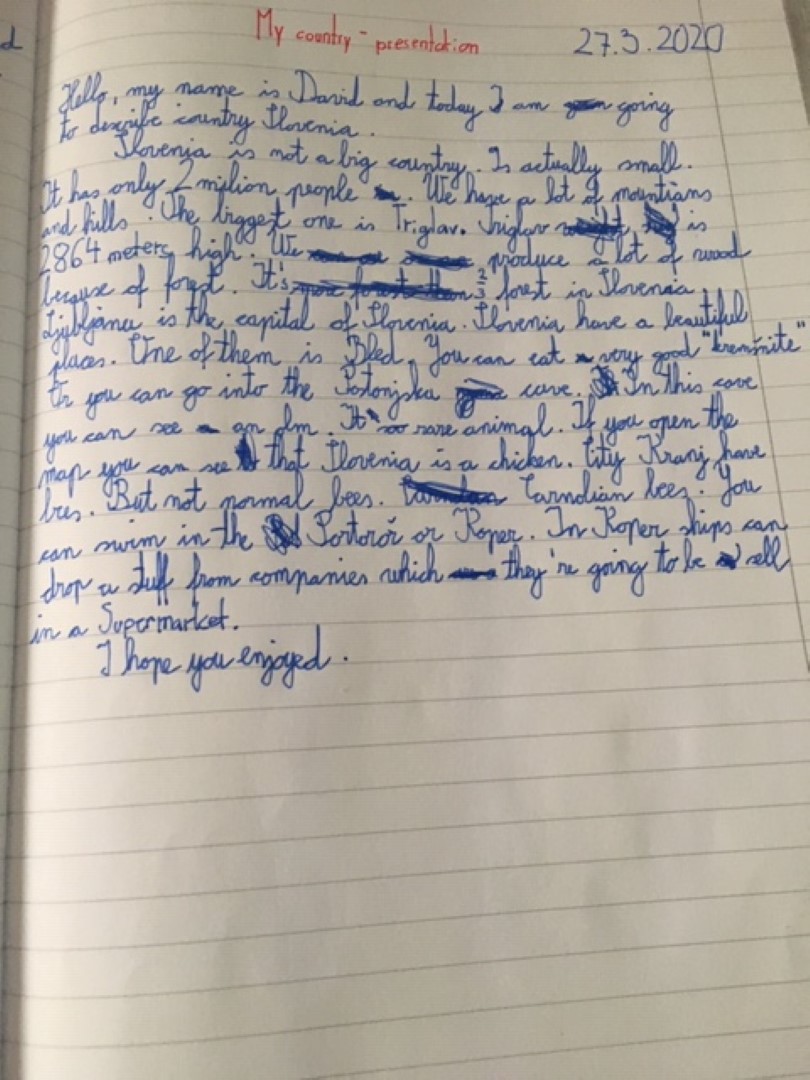 d
My country - presentation 27.3.2020
Hello, my name is David and today I am going
to describe country Slovenia.
Slovenia is not a big country. Is actually small.
It has only 2 milion people. We have a lot of mountians
and hills. The biggest one is Triglav. Triglav is
2864 meters high. We produce a lot of wood
because of forest. It's 2/3 forest in Slovenia.
Ljubljana is the capital of Slovenia. Slovenia have a beautiful
places. One of them is Bled. You can eat very good "kremšnite"
Or you can go into the Postonjska cave. In this cave
you can see an olm. It's rare animal. If you open the
map you can see that Slovenia is a chicken. City Kranj have
bees. But not normal bees. Carndian bees. You
can swim in the Portorož or Koper. In Koper ships can
drop a stuff from companies which they're going to be sell
in a Supermarket.
I hope you enjoyed.